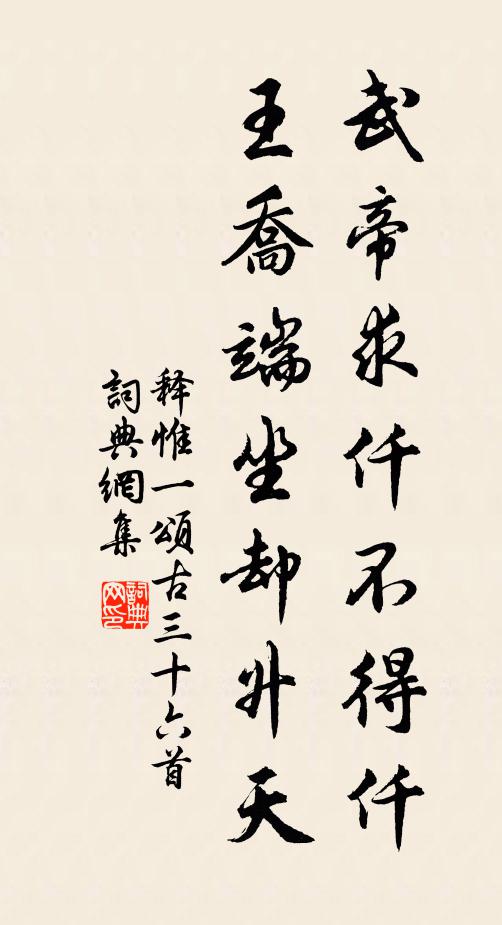 武帝求仟不得仟
王喬端坐却升天
释惟一頌古三十六首
詞典網集
詞典网印